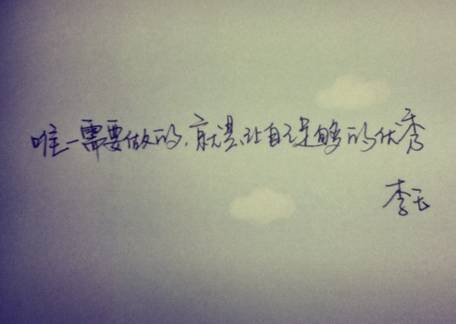 唯一需要做的,就是让自己足够的优秀
李玉